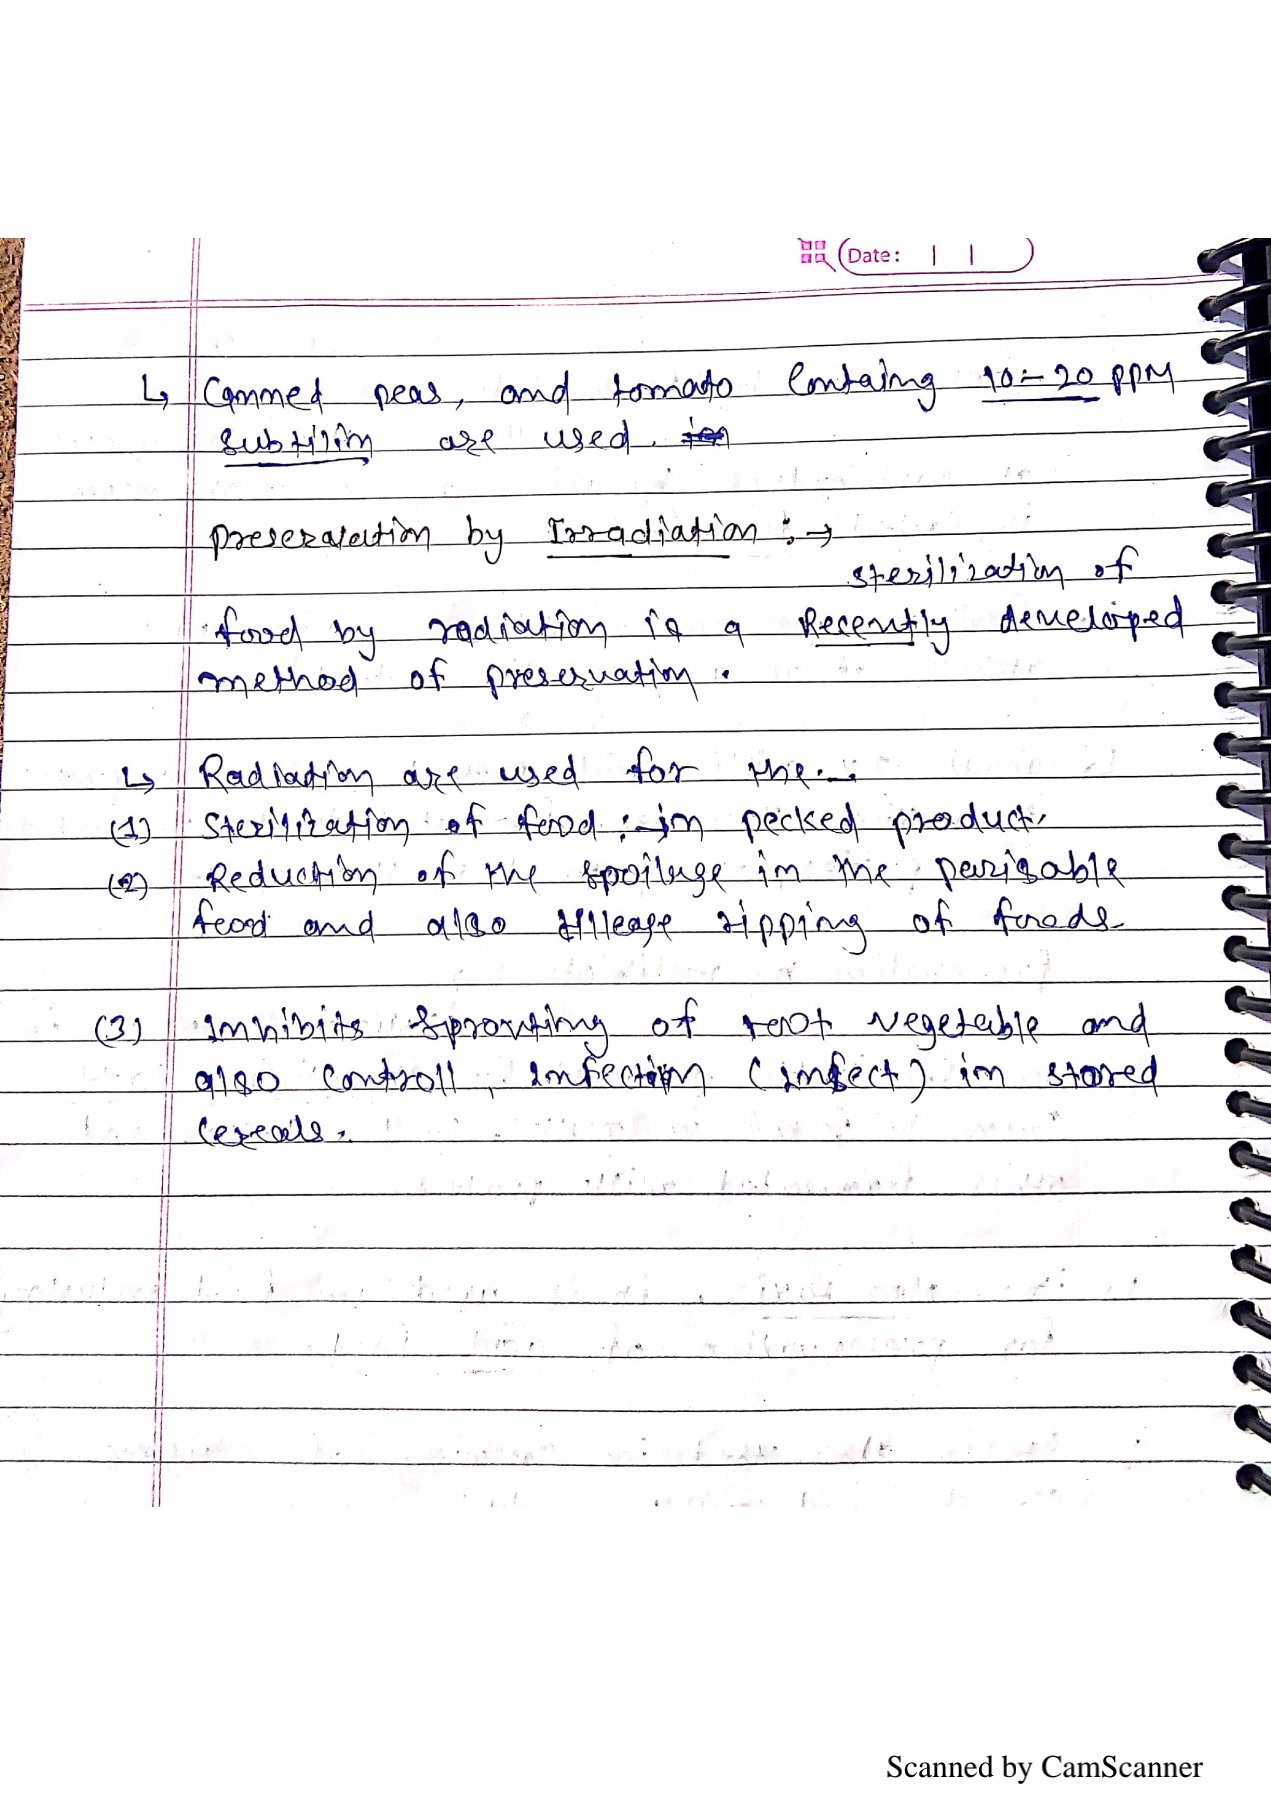 Date: | |
↳ Canned peas, and tomato Containg 10-20 PPM
subtilin are used.
Preservation by Irradiation :→
sterilization of
food by radiation is a Recently developed
method of preservation.
↳ Radiation are used for the :-
(1) Sterilization of food :- in pecked product.
(2) Reduction of the spoilage in the perisable
food and also ripping of foods
(3) Inhibits sprouting of root vegetable and
also controll, infection (insect) in stored
cereals.
Scanned by CamScanner